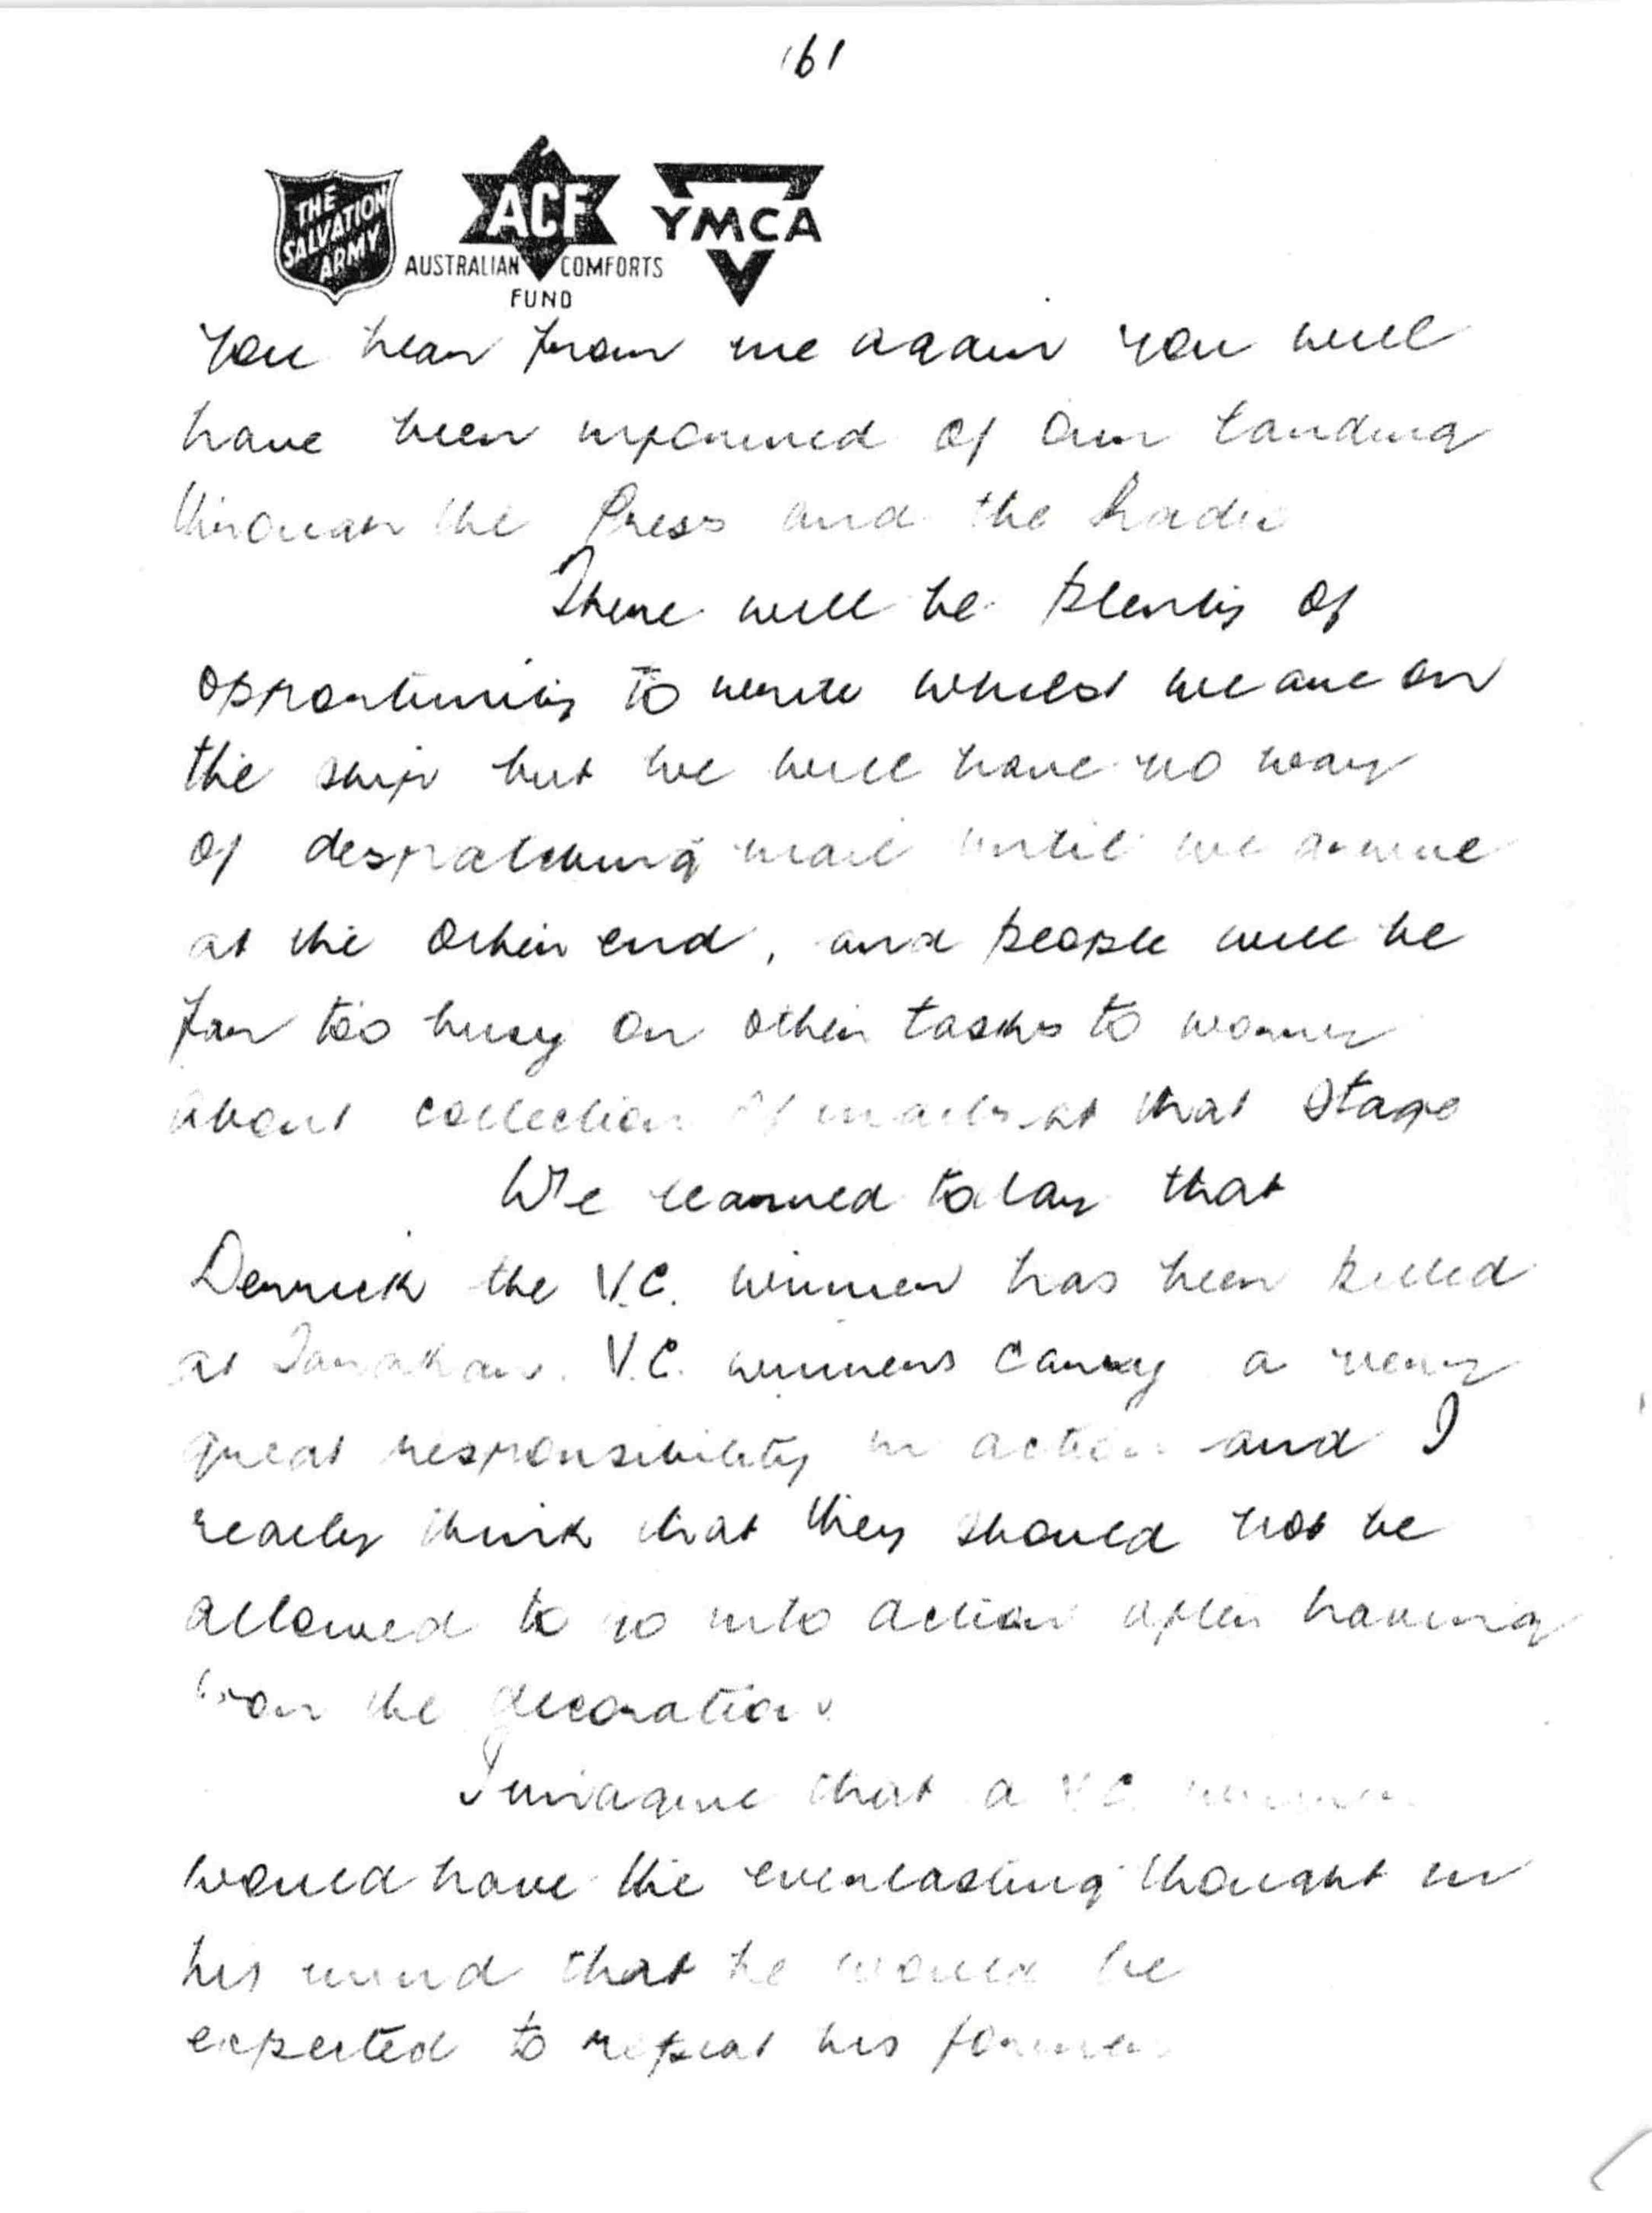 161
THE SALVATION ARMY
ACF
AUSTRALIAN COMFORTS FUND
YMCA
you hear from me again you will
have been informed of our landing
through the Press and the Radio
There will be plenty of
opportunity to write whilst we are on
the ship but we will have no way
of despatching mail until we arrive
at the other end, and people will be
far too busy on other tasks to worry
about collection of mails at that stage
We learned today that
Derrick the V.C. winner has been killed
at Tarakan. V.C. winners carry a very
great responsibility in action and I
really think that they should not be
allowed to go into action after having
won the decoration.
I imagine that a V.C. winner
would have the everlasting thought in
his mind that he would be
expected to repeat his former